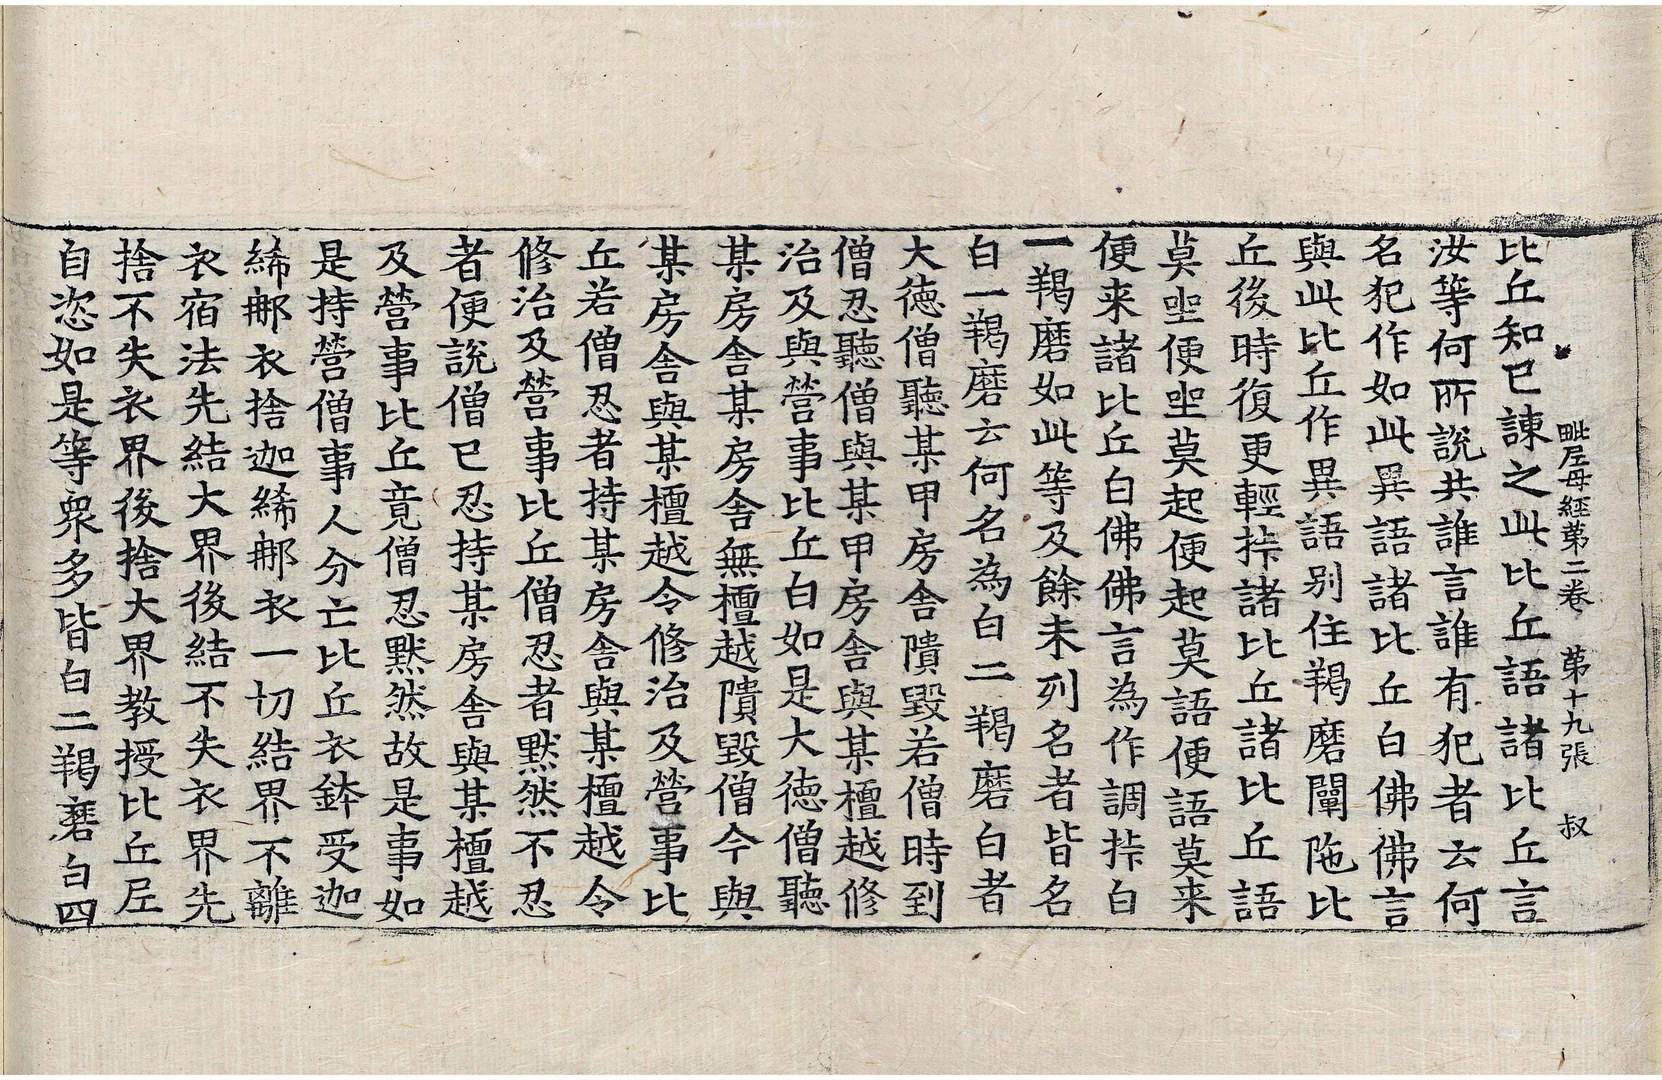 毗尼母經第二卷 第十九張 叔
比丘知已諫之此比丘語諸比丘言
汝等何所說共誰言誰有犯者云何
名犯作如此異語諸比丘白佛佛言
與此比丘作異語別住羯磨闡陁比
丘後時復更輕㧗諸比丘諸比丘語
莫坐便坐莫起便起莫語便語莫来
便来諸比丘白佛佛言為作調㧗白
一羯磨如此等及餘未列名者皆名
白一羯磨云何名為白二羯磨白者
大徳僧聽某甲房舍隤毀若僧時到
僧忍聽僧與某甲房舍與某檀越修
治及與營事比丘白如是大徳僧聽
某房舍某房舍無檀越隤毀僧今與
某房舍與某檀越令修治及營事比
丘若僧忍者持某房舍與某檀越令
修治及營事比丘僧忍者黙然不忍
者便說僧已忍持某房舍與某檀越
及營事比丘竟僧忍黙然故是事如
是持營僧事人分亡比丘衣鉢受迦
絺郍衣捨迦絺郍衣一切結界不離
衣宿法先結大界後結不失衣界先
捨不失衣界後捨大界教授比丘尼
自恣如是等衆多皆白二羯磨白四